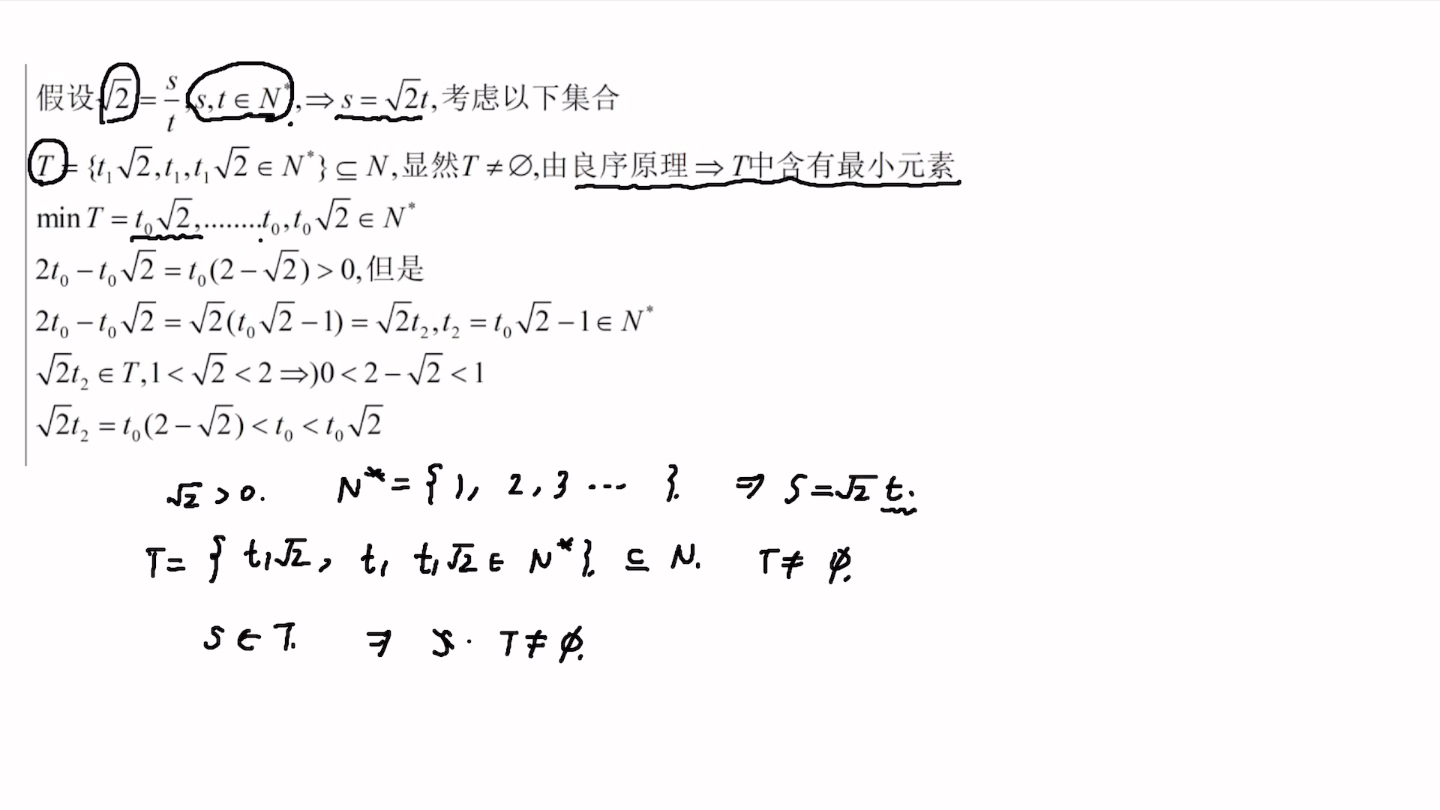 假设√2 = s/t, s,t ∈ N*, ⇒ s = √2t, 考虑以下集合
T = {t₁√2, t₁, t₁√2 ∈ N*} ⊆ N, 显然T ≠ ∅, 由良序原理 ⇒ T中含有最小元素
min T = t₀√2, ........t₀, t₀√2 ∈ N*
2t₀ − t₀√2 = t₀(2 − √2) > 0, 但是
2t₀ − t₀√2 = √2(t₀√2 − 1) = √2t₂, t₂ = t₀√2 − 1 ∈ N*
√2t₂ ∈ T, 1 < √2 < 2 ⇒)0 < 2 − √2 < 1
√2t₂ = t₀(2 − √2) < t₀ < t₀√2
√2 > 0. N* = {1, 2, 3 ··· }. ⇒ S = √2 t.
T = { t₁√2, t₁ t₁√2 ∈ N* }. ⊆ N. T ≠ ∅.
S ∈ T. ⇒ T ≠ ∅.